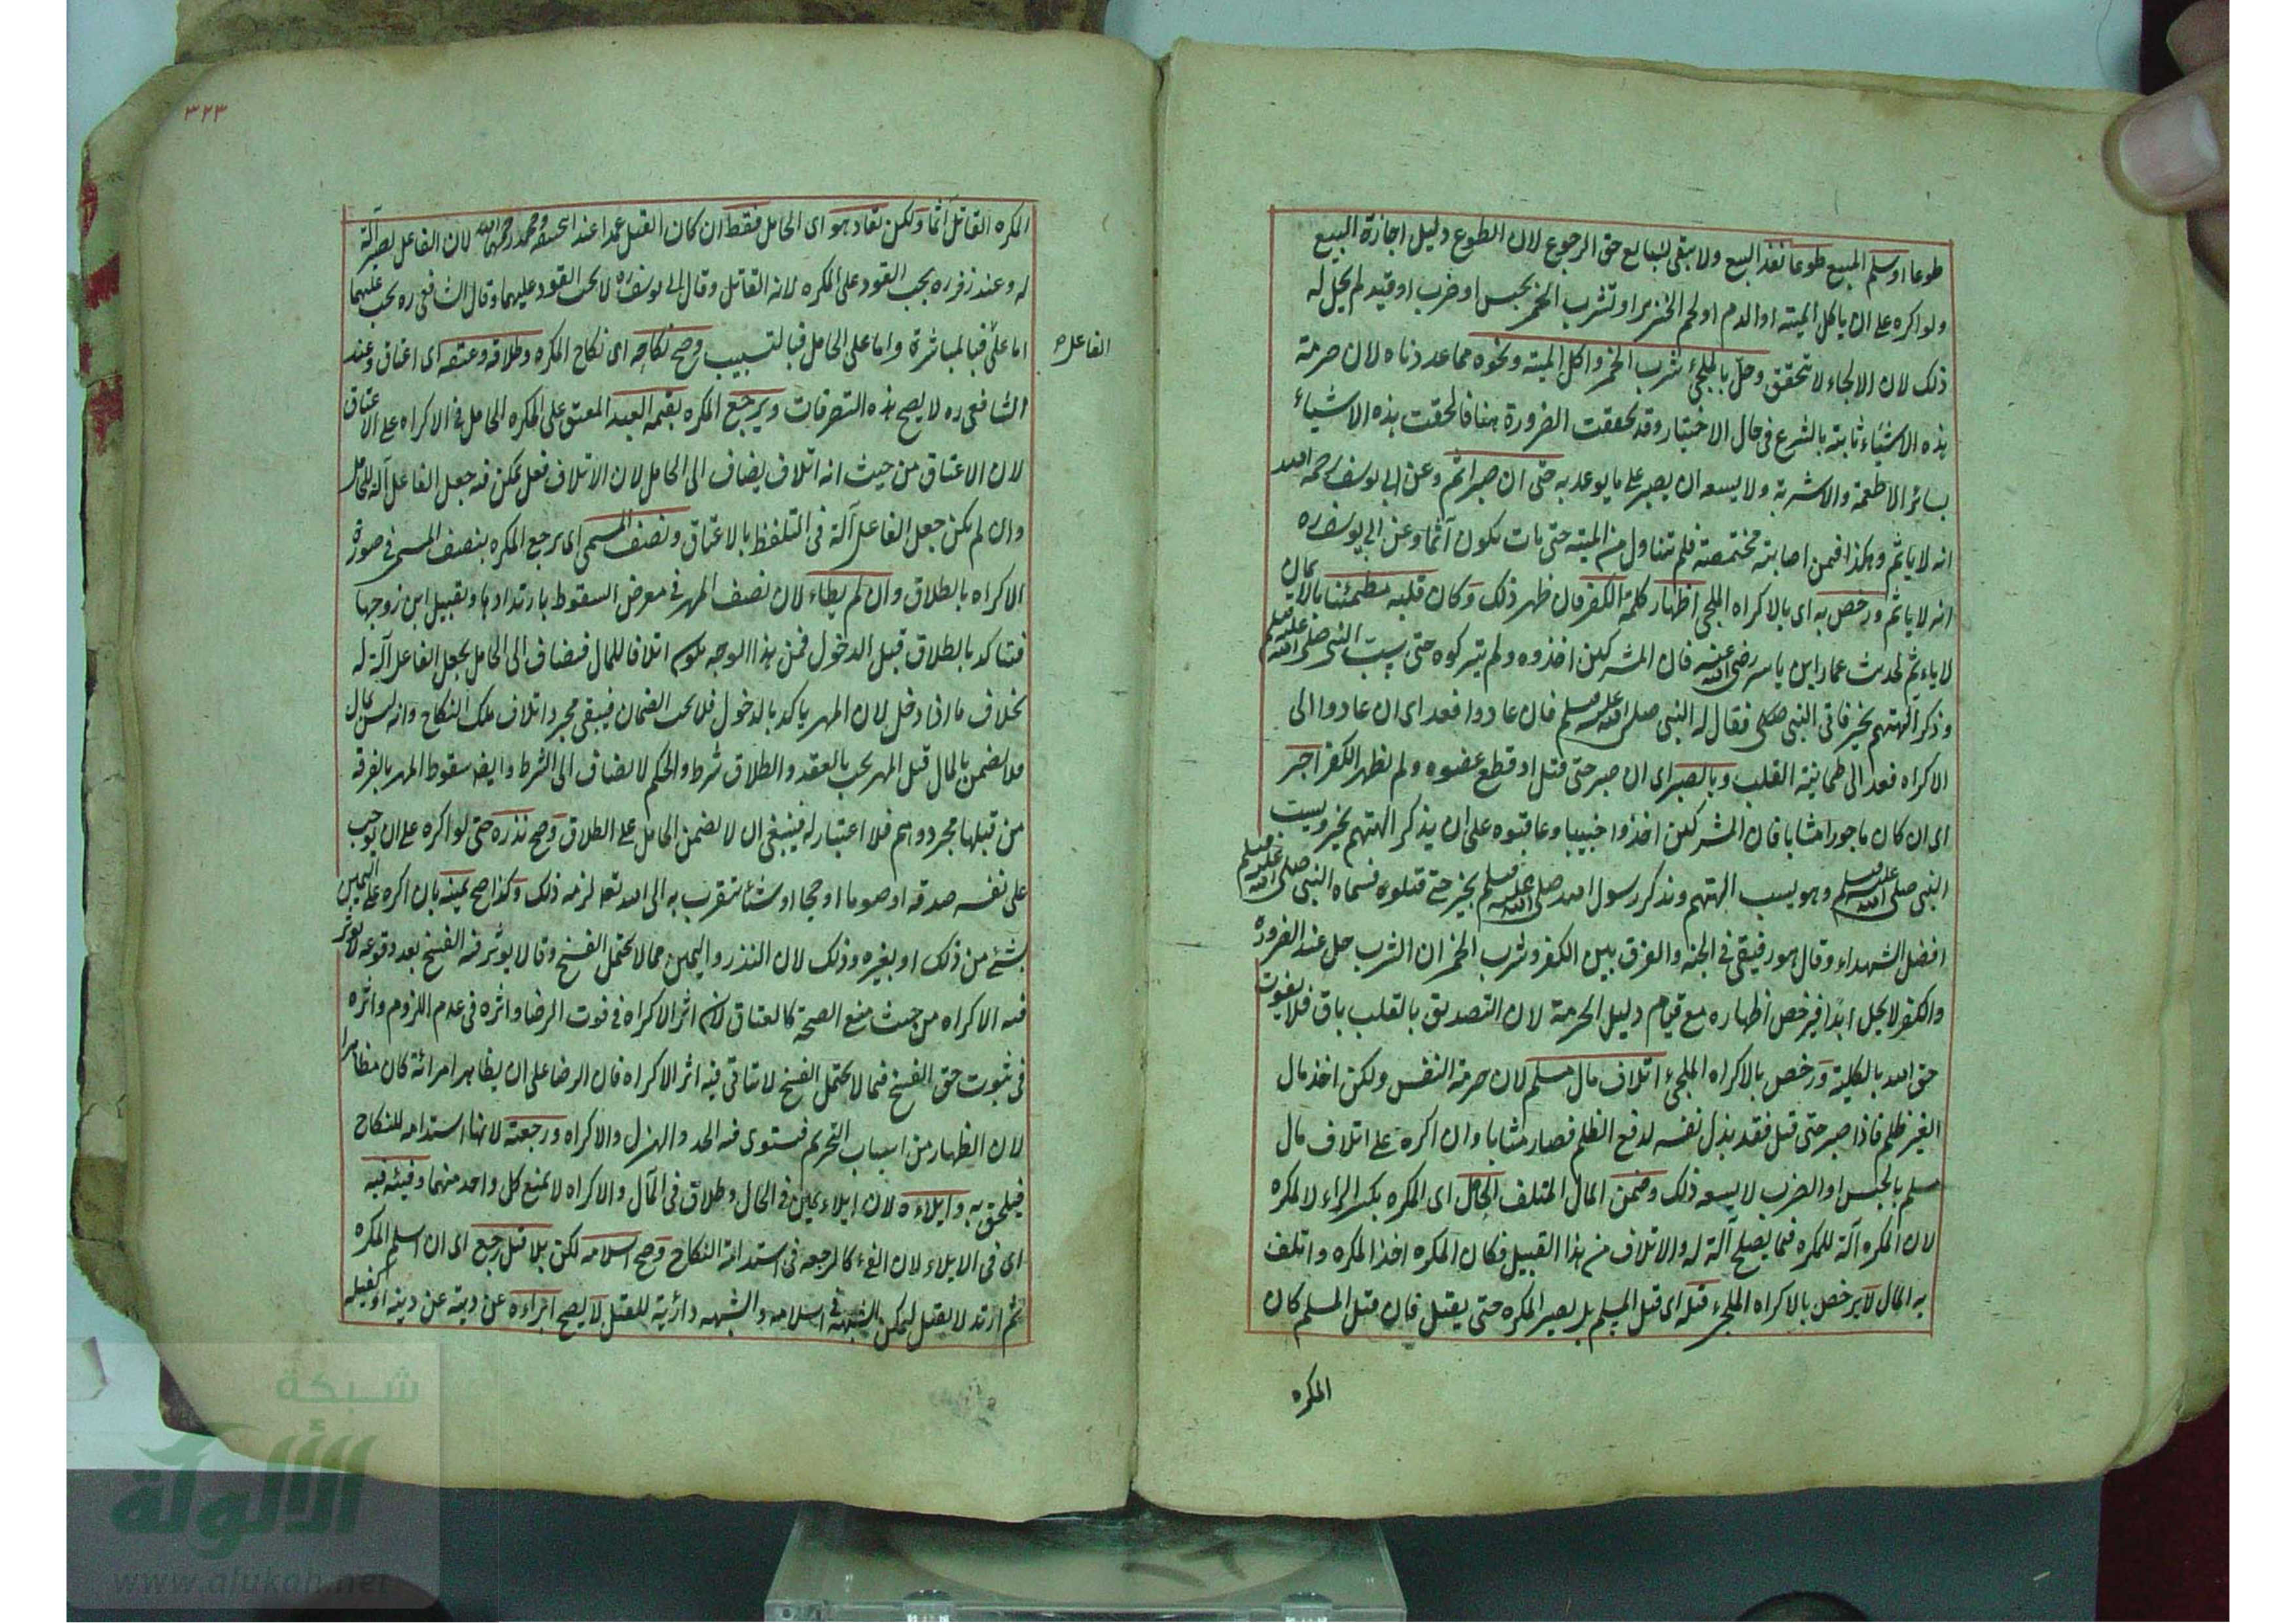 طوعا او سلم المبيع طوعا نفذ البيع ولا يبقى للبايع حق الرجوع لان الطوع دليل اجازة البيع
ولو اكره على ان ياكل الميته او الدم او لحم الخنزير او تشرب الخمر بحبس او ضرب او قيد لم يحل له
ذلك لان الالجاء لا يتحقق وحل بالملجئ شرب الخمر واكل الميته ونحوه مما عددناه لان حرمة
هذه الاشياء ثابته بالشرع في حال الاختيار وقد تحققت الضرورة هنا فالحقت هذه الاشياء
بسائر الاطعمة والاشربة ولا يسعه ان يصبر على ما يوعد به حتى ان صبر اثم وعن ابي يوسف رحمه الله
انه لا ياثم وهكذا فيمن اصابته مخمصة فلم تتناول من الميته حتى مات يكون آثما وعن ابي يوسف ره
انه لا ياثم ورخص به اى بالاكراه الملجى اظهار كلمة الكفر فان ظهر ذلك وكان قلبه مطمئنا بالايمان
لا ياءثم لحديث عمار ابن ياسر رضى الله عنه فان المشركين اخذوه ولم يتركوه حتى يسب النبى صلى الله عليه وسلم
وذكر آلهتهم بخير فاتى النبى صلى فقال له النبى صلى الله عليه وسلم فان عادوا فعد اى ان عادوا الى
الاكراه فعد الى طمانينة القلب وبالصبر اى ان صبر حتى قتل او قطع عضوه ولم يظهر الكفر اجر
اى ان كان ماجورا مثابا فان المشركين اخذوا خبيبا وعاقبوه على ان يذكر الهتهم بخير ويسب
النبى صلى الله عليه وسلم وهو يسب الهتهم ويذكر رسول الله صلى الله عليه وسلم بخير حتى قتلوه فسماه النبى صلى الله عليه وسلم
افضل الشهداء وقال هو رفيقى في الجنه والفرق بين الكفر وشرب الخمر ان الشرب حل عند الضرورة
والكفر لا يحل ابدا فيرخص اظهاره مع قيام دليل الحرمة لان التصديق بالقلب باق فلا يفوت
حق الله بالكلية ورخص بالاكراه الملجئ اتلاف مال مسلم لان حرمة النفس ولكن اخذ مال
الغير ظلم فاذا صبر حتى قتل فقد بذل نفسه لدفع الظلم فصار مثابا وان اكره على اتلاف مال
مسلم بالحبس او الضرب لا يسعه ذلك وضمن المال المتلف الحامل اى المكره بكسر الراء لا المكره
لان المكره آلة للمكره فيما يصلح آلة له والاتلاف من هذا القبيل فكان المكره اخذ المكره واتلف
به المال لا يرخص بالاكراه الملجئ قتله اى قتل المسلم بل يصبر المكره حتى يقتل فان قتل المسلم كان
المكره
٣٢٣
المكره القاتل آثما ولكن يقاد هو اى الحامل فقط ان كان القتل عمدا عند ابيحنيفه ومحمد رحمهما الله لان الفاعل يصير آلة
له وعند زفر ره يجب القود على المكره لانه القاتل وقال ابى يوسف ره لا يجب القود عليهما وقال الشافعى ره يجب عليهما
الفاعل ه
اما على فبالمباشرة واما على الحامل فبالتسبيب وصح نكاحه اى نكاح المكره وطلاقه وعتقه اى اعتاق وعند
الشافعى ره لا يصح هذه التصرفات ويرجع المكره بقيمة العبد المعتق على المكره الحامل في الاكراه على الاعتاق
لان الاعتاق من حيث انه اتلاف يضاف الى الحامل لان الاتلاف فعل يمكن فيه جعل الفاعل آلة للحامل
وان لم يكن جعل الفاعل آلة فى التلفظ بالاعتاق ونصف المسمى اى يرجع المكره بنصف المسمى في صورة
الاكراه بالطلاق وان لم يطاء لان نصف المهر في معرض السقوط بارتدادها وتقبيل ابن زوجها
فتتاكد بالطلاق قبل الدخول فمن هذا الوجه يكون اتلافا للمال فيضاف الى الحامل بجعل الفاعل آلة له
بخلاف ما اذا دخل لان المهر ياكد بالدخول فلا يجب الضمان فيبقى مجرد اتلاف ملك النكاح وانه ليس بمال
فلا يضمن بالمال قبل المهر يجب بالعقد والطلاق شرط والحكم لا يضاف الى الشرط وايضا سقوط المهر بالفرقه
من قبلها مجرد وهم فلا اعتبار له فينبغى ان لا يضمن الحامل على الطلاق وصح نذره حتى لو اكره على ان يوجب
على نفسه صدقه او صوما او حجا او شيئا يتقرب به الى الله تعا لزمه ذلك وكذا صح يمينه بان اكره على اليمين
بشئ من ذلك او بغيره وذلك لان النذر واليمين مما لا يحتمل الفسخ وقالا يوثر فيه الفسخ بعد وقوعه لا يوثر
فيه الاكراه من حيث منع الصحة كالعتاق لان اثر الاكراه في فوت الرضا واثره في عدم اللزوم واثره
فى ثبوت حق الفسخ فيما لا يحتمل الفسخ لا يتاتى فيه اثر الاكراه فان الرضا على ان يظاهر امرائة كان مظاهرا
لان الظهار من اسباب التحريم فيستوى فيه الجد والهزل والاكراه ورجعته لانها استدامه للنكاح
فيلحق به وايلاءه لان ايلاء يمين في الحال وطلاق فى المآل والاكراه لا يمنع كل واحد منهما وفيئه فيه
اى فى الايلاء لان الفئ كالرجعه فى استدامة النكاح وصح اسلامه لكن بلا قتل رجع اى ان اسلم المكره
ثم ارتد لا يقتل لتمكن الشبهة فى اسلامه والشبهه دارئة للقتل لا يصح ابراءه عن دينه او كفيله
شبكة
الألوكة
www.alukah.net